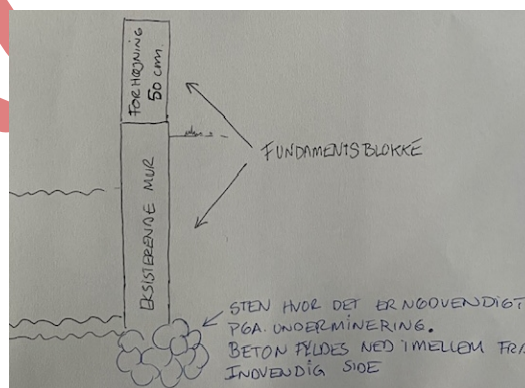 FORHØJNING
50 cm.
EKSISTERENDE MUR
FUNDAMENTSBLOKKE
STEN HVOR DET ER NØDVENDIGT
PGA. UNDERMINERING.
BETON FYLDES NED IMELLEM FRA
INDVENDIG SIDE